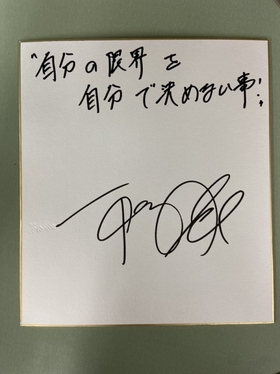 "自分の限界を
自分で決めない事!"